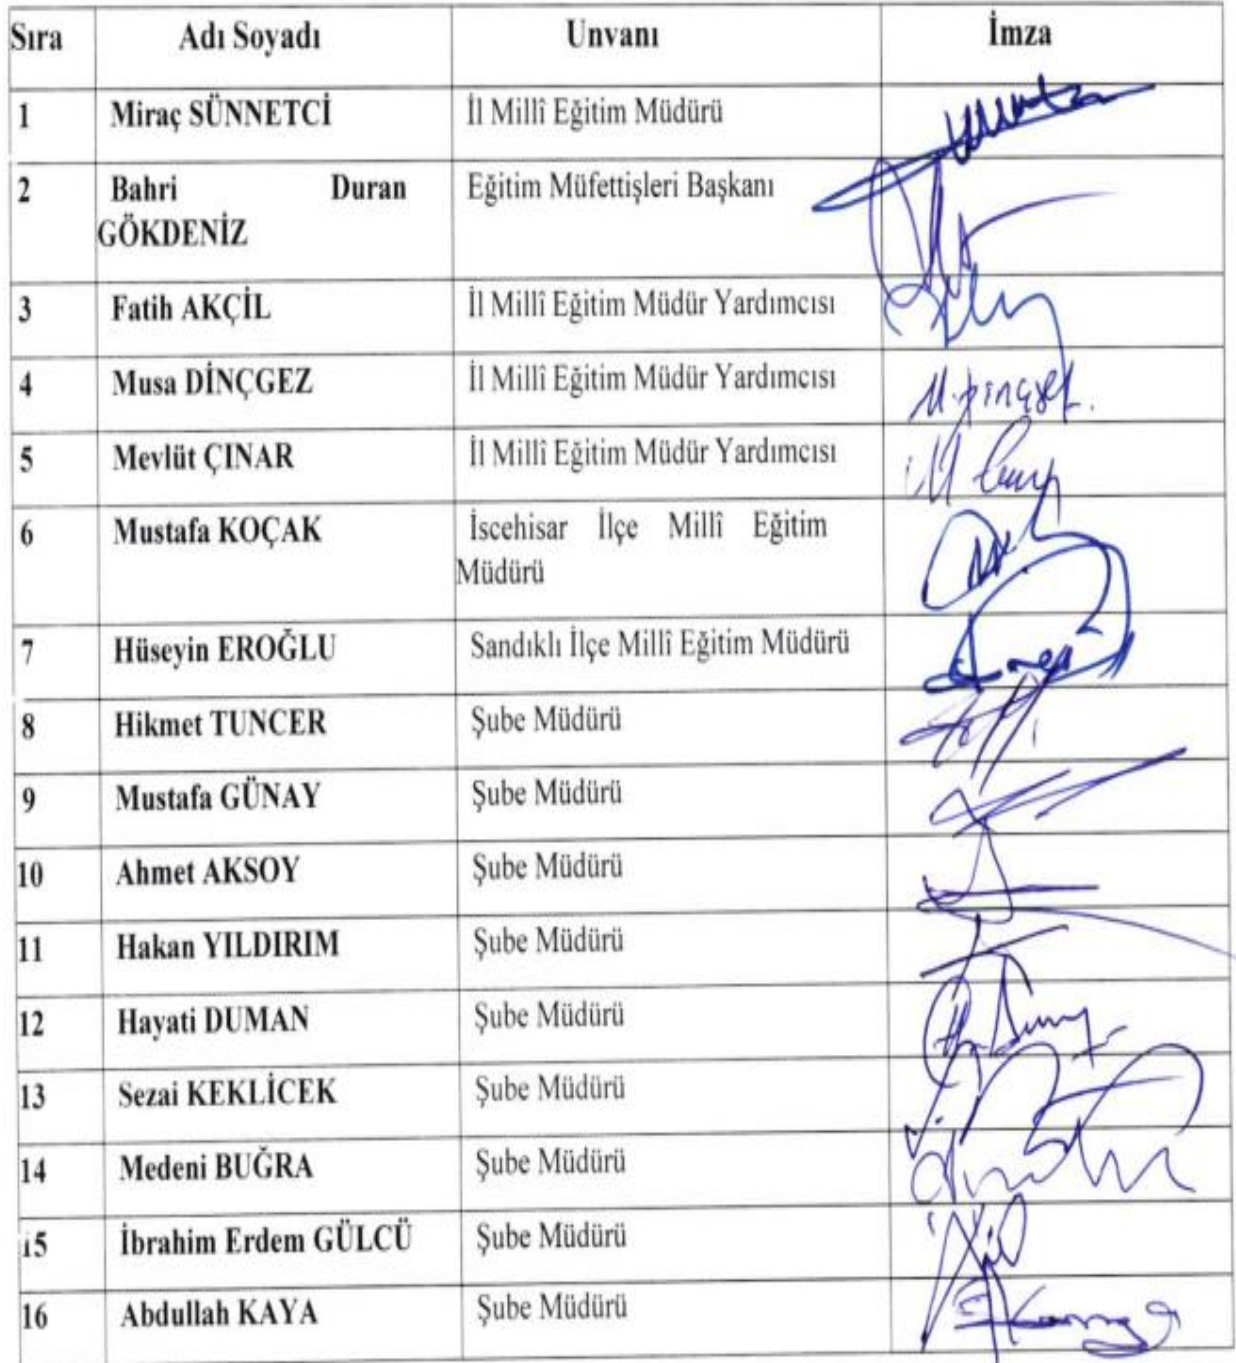 Sıra Adı Soyadı Unvanı İmza
1 Miraç SÜNNETCİ İl Millî Eğitim Müdürü
2 Bahri Duran Eğitim Müfettişleri Başkanı
GÖKDENİZ
3 Fatih AKÇİL İl Millî Eğitim Müdür Yardımcısı
4 Musa DİNÇGEZ İl Millî Eğitim Müdür Yardımcısı
5 Mevlüt ÇINAR İl Millî Eğitim Müdür Yardımcısı
6 Mustafa KOÇAK İscehisar İlçe Millî Eğitim
Müdürü
7 Hüseyin EROĞLU Sandıklı İlçe Millî Eğitim Müdürü
8 Hikmet TUNCER Şube Müdürü
9 Mustafa GÜNAY Şube Müdürü
10 Ahmet AKSOY Şube Müdürü
11 Hakan YILDIRIM Şube Müdürü
12 Hayati DUMAN Şube Müdürü
13 Sezai KEKLİCEK Şube Müdürü
14 Medeni BUĞRA Şube Müdürü
15 İbrahim Erdem GÜLCÜ Şube Müdürü
16 Abdullah KAYA Şube Müdürü